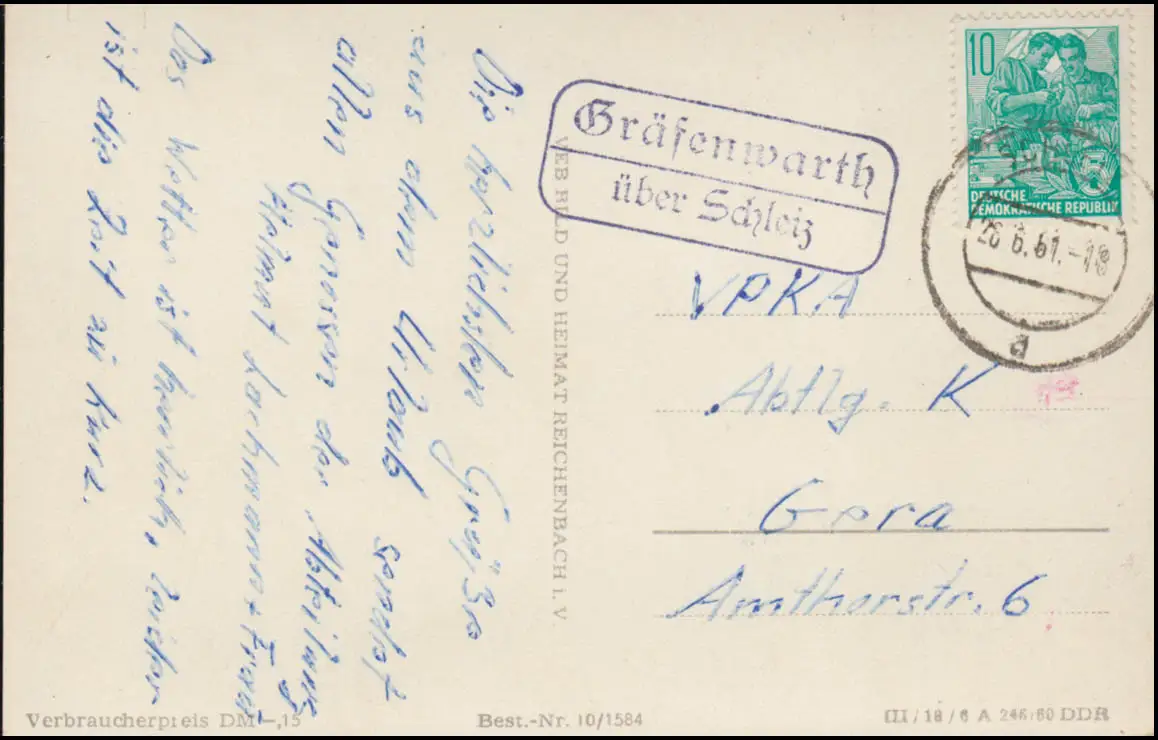 Die herzlichsten Grüße
aus dem Urlaub sendet
allen Genossen der Abteilung
Helmut Lachmann + Frau
Das Wetter ist herrlich, leider
ist die Zeit zu kurz.
VEB BILD UND HEIMAT REICHENBACH i. V.
Gräfenwarth
über Schleiz
10
DEUTSCHE
DEMOKRATISCHE REPUBLIK
26.6.61.-18
a
VPKA
Abtlg. K
Gera
Amthorstr. 6
Verbraucherpreis DM -,15
Best.-Nr. 10/1584
III/18/6 A 246/60 DDR